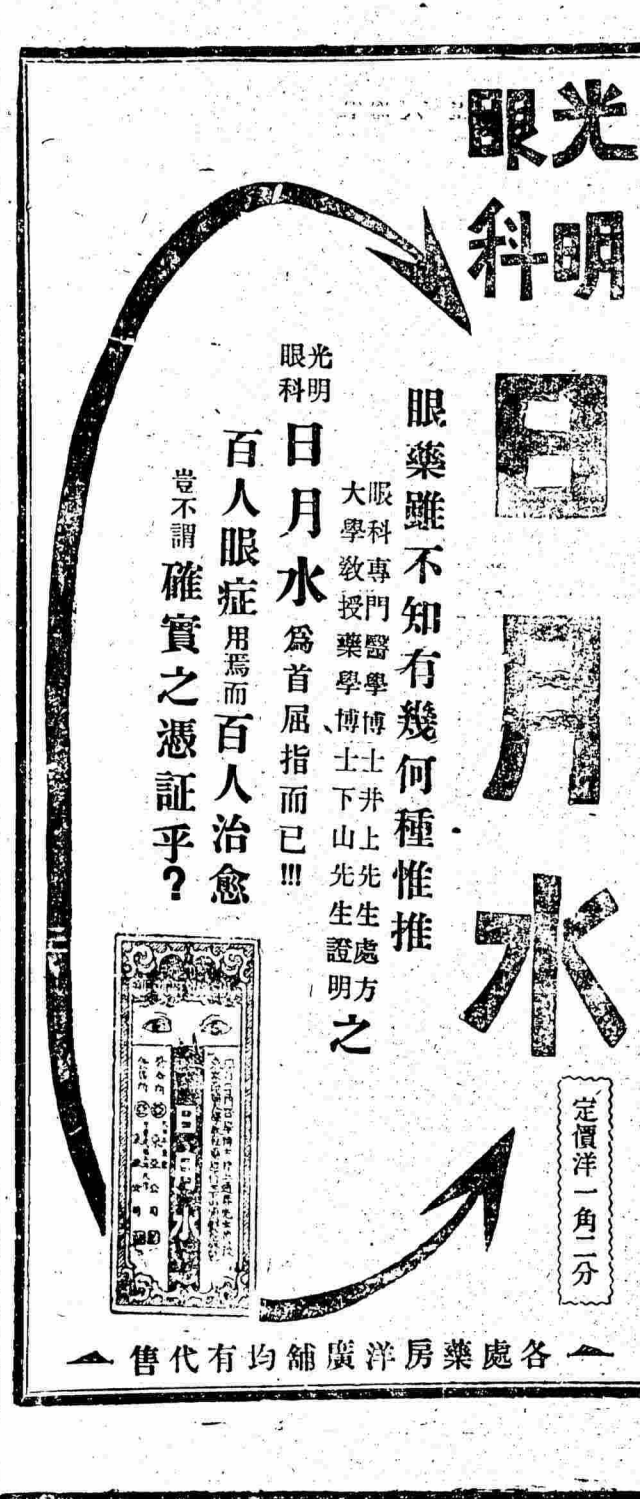 光明
眼科
日月水
定價洋一角二分
眼藥雖不知有幾何種惟推
眼科專門醫學博士井上先生處方
大學敎授藥學博士下山先生證明之
光明
眼科
日月水爲首屈指而已!!!
百人眼症用焉而百人治愈
豈不謂確實之憑証乎?
日月水
各處藥房洋廣舖均有代售